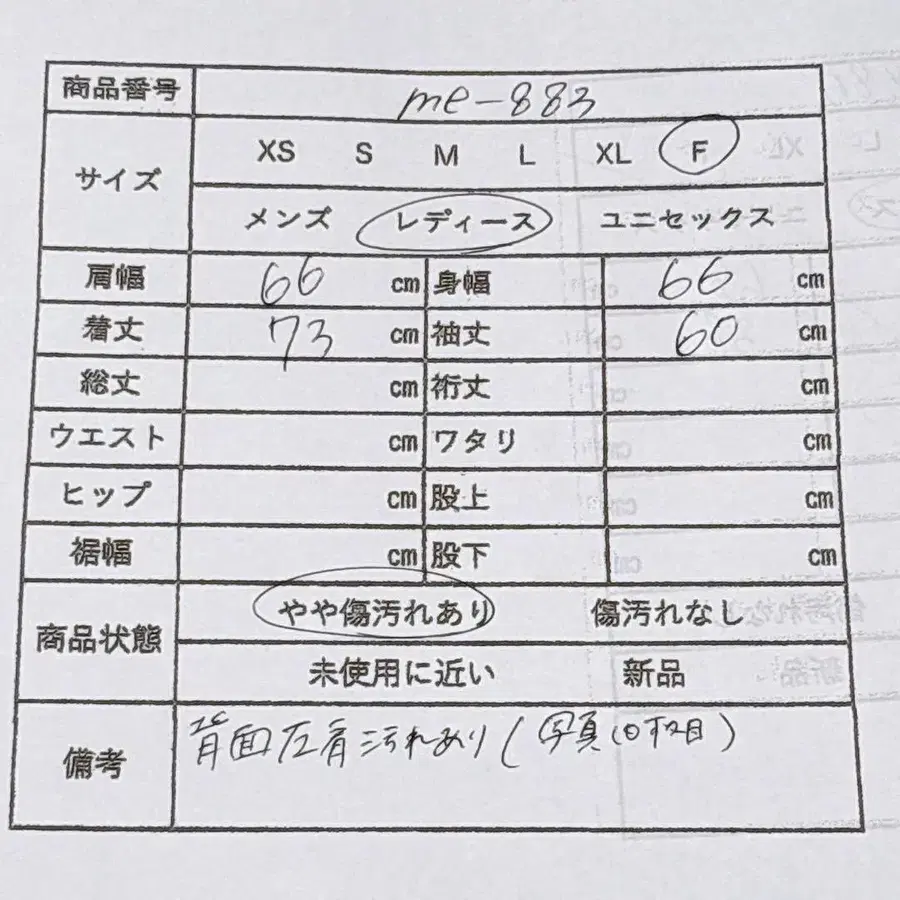 商品番号 me-883
サイズ XS S M L XL F
メンズ レディース ユニセックス
肩幅 66 cm 身幅 66 cm
着丈 73 cm 袖丈 60 cm
総丈 cm 裄丈 cm
ウエスト cm ワタリ cm
ヒップ cm 股上 cm
裾幅 cm 股下 cm
商品状態 やや傷汚れあり 傷汚れなし
未使用に近い 新品
備考 背面左肩汚れあり(写真 枚目)